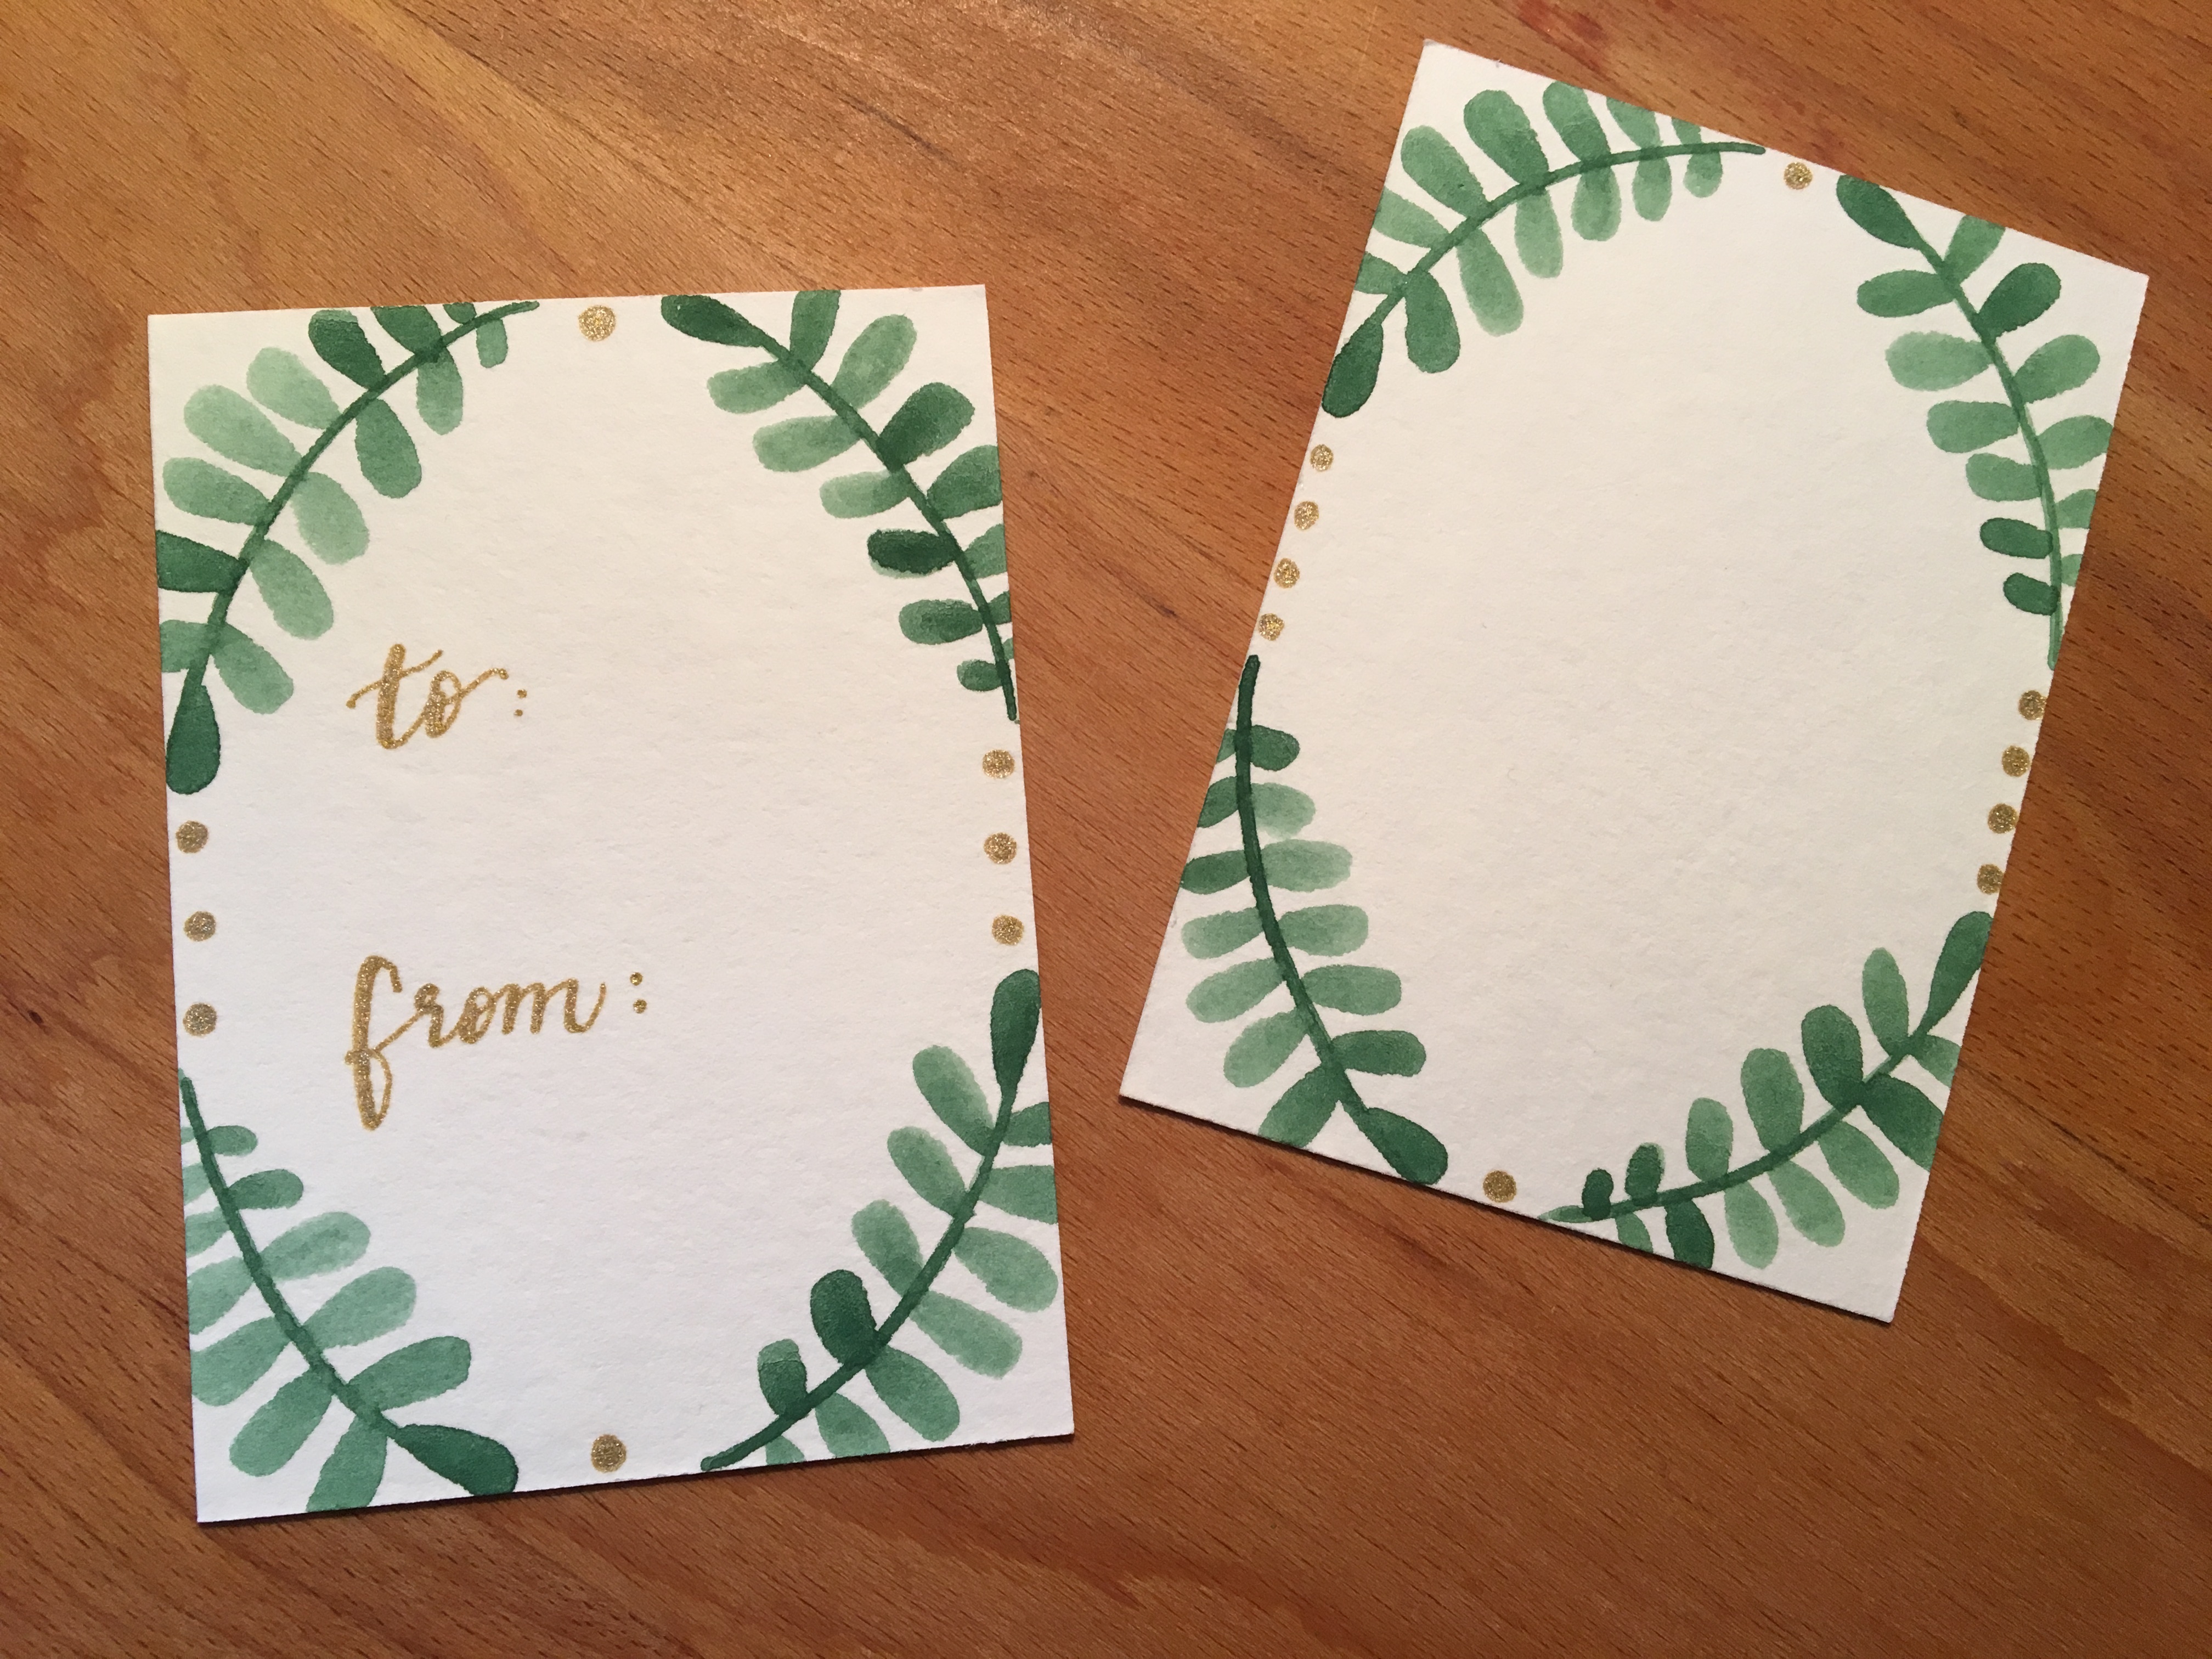 to:
from: